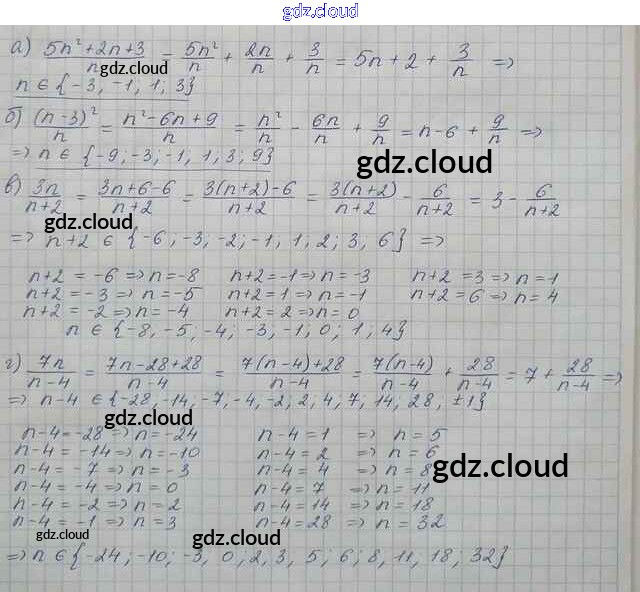 gdz.cloud
а) (5n²+2n+3)/n = 5n²/n + 2n/n + 3/n = 5n + 2 + 3/n ⇒
gdz.cloud
n ∈ {-3, -1, 1, 3}
б) (n-3)²/n = (n²-6n+9)/n = n²/n - 6n/n + 9/n = n-6 + 9/n ⇒
⇒ n ∈ {-9; -3; -1, 1, 3, 9}
gdz.cloud
в) 3n/(n+2) = (3n+6-6)/(n+2) = (3(n+2)-6)/(n+2) = 3(n+2)/(n+2) - 6/(n+2) = 3 - 6/(n+2)
⇒ n+2 ∈ {-6; -3; -2; -1, 1, 2; 3, 6} ⇒
gdz.cloud
n+2 = -6 ⇒ n = -8 n+2 = -1 ⇒ n = -3 n+2 = 3 ⇒ n = 1
n+2 = -3 ⇒ n = -5 n+2 = 1 ⇒ n = -1 n+2 = 6 ⇒ n = 4
n+2 = -2 ⇒ n = -4 n+2 = 2 ⇒ n = 0
n ∈ {-8, -5, -4; -3; -1, 0; 1; 4}
г) 7n/(n-4) = (7n-28+28)/(n-4) = (7(n-4)+28)/(n-4) = 7(n-4)/(n-4) + 28/(n-4) = 7 + 28/(n-4) ⇒
⇒ n-4 ∈ {-28, -14, -7, -4, -2; 2; 4; 7, 14; 28, ±1}
gdz.cloud
n-4 = -28 ⇒ n = -24 n-4 = 1 ⇒ n = 5
n-4 = -14 ⇒ n = -10 n-4 = 2 ⇒ n = 6
n-4 = -7 ⇒ n = -3 n-4 = 4 ⇒ n = 8
gdz.cloud
n-4 = -4 ⇒ n = 0 n-4 = 7 ⇒ n = 11
n-4 = -2 ⇒ n = 2 n-4 = 14 ⇒ n = 18
n-4 = -1 ⇒ n = 3 n-4 = 28 ⇒ n = 32
gdz.cloud
gdz.cloud
⇒ n ∈ {-24; -10; -3, 0; 2, 3, 5; 6; 8, 11, 18; 32}